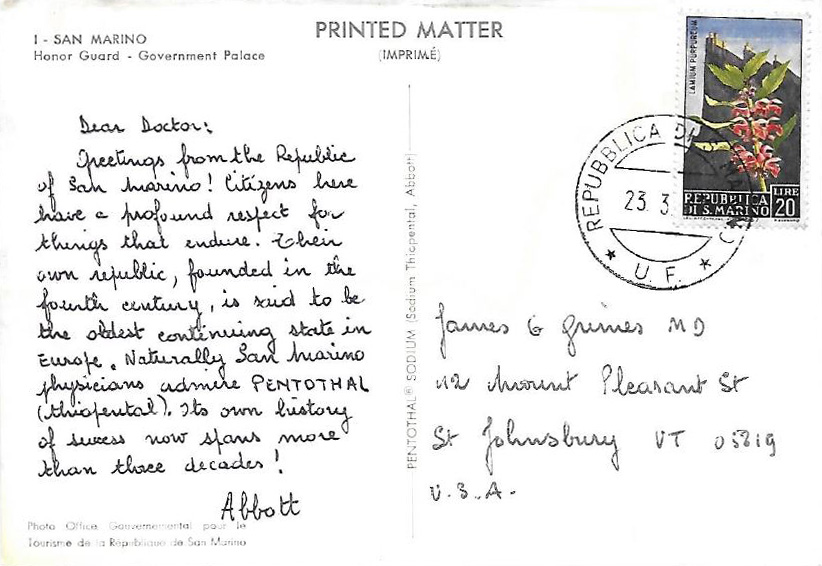 PRINTED MATTER
(IMPRIMÉ)
1 - SAN MARINO
Honor Guard - Government Palace
Dear Doctor:
Greetings from the Republic
of San Marino! Citizens here
have a profound respect for
things that endure. Their
own republic, founded in the
fourth century, is said to be
the oldest continuing state in
Europe. Naturally San Marino
physicians admire PENTOTHAL
(thiopental). Its own history
of success now spans more
than three decades!
Abbott
Photo Office Gouvernemental pour le
Tourisme de la République de San Marino
PENTOTHAL® SODIUM (Sodium Thiopental, Abbott)
LAMIUM PURPUREUM
REPUBBLICA
DI S. MARINO
LIRE
20
REPUBBLICA DI
23.3
U. F.
James G Grimes MD
42 Mount Pleasant St
St Johnsbury VT 05819
U.S.A.